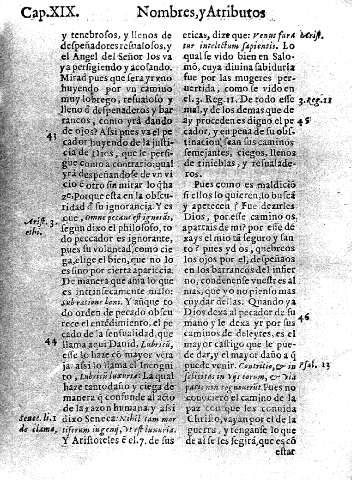 Cap. XIX.
Nombres, y Atributos
y tenebrosos, y llenos de
despeñadores resualosos, y
el Angel del Señor los va
ya persigiendo y acosando.
Mirad pues que sera yr vno
huyendo por vn camino
muy lobrego, resualoso y
lleno d̃ despeñaderos y bar
rancos, como yrá dando
41
de ojos? Assi pues va el pe
cador huyendo de la justi
cia de Dios, que le persi-
gue como a contrario: qual
yra despeñandose de vn vi
cio ẽ otro sin mirar lo q̃ ha
ze. Porque esta en la obscu-
ridad d̃ su ignorancia. Y es
Arist. 3.
ethi.
que, Omnis peccans est ignorãs,
segun dixo el philosofo, to
do peccador es ignorante,
pues su voluntad, como cie
ga, elige el bien, que no lo
es sino por cierta apariccia.
De manera que ama lo que
es intrinsecamente malo:
sub ratione boni. Y aũque to
do orden de pecado obscu
rece el entẽdimiento, el pe
cado de la sensualidad, que
44
llama aqui Dauid, Lubricũ
esse lo haze cõ mayor venta
ja. assi lo llama el Incogni
to, Lubricũ luxuriæ: La qual
haze tanto daño y ciega de
manera q̃ confunde al acto
de la razon humana. y assi
Senec. li. 1
de clama.
dixo Seneca: Nihil tam mor
tiferum ingenijs, ut est luxuria.
Y Aristoteles ẽ el 7. de sus
eticas, dize que: Venus furã
tur intellectum sapientis. Lo
Arist.
qual se vido bien en Salo-
mõ, cuya diuina sabiduria
fue por las mugeres per-
uertida, como se vido en
el. 3. Reg. 11. De todo esse
3. Reg. 11
mal, y de los demas que de
ay proceden es digno el pe
45
cador, y en pena de su obs-
tinaciõ, sean sus caminos
semejantes, ciegos, llenos
de tinieblas, y resualade-
ros.
Pues como es maldiciõ
si ellos lo quieren, lo buscã
y apetecen? Fue dezirles
Dios, por esse camino os
apartais de mi? por esse de
xays el mio tã seguro y san
to? pues yd os, quebreos
los ojos por el, despeñaos
en los barrancos del infier
no, condenese vuestra al
ma, que yo no pienso mas
cuydar dellas. Quando ya
Dios dexa al pecador de su
46
mano y le dexa yr por sus
caminos de deleytes, es el
mayor castigo que le pue-
de dar, y el mayor daño q̃
puede venir. Contritio, & in
Psal. 13
felicitas in vijs eorum, & viã
pacis non cognouerũt. Pues no
conocierõ el camino de la
paz con que les conuida
Christo, vayan por el de la
guerra, y vengan que lo que
de ai se les seguirá, que es cõ
estar